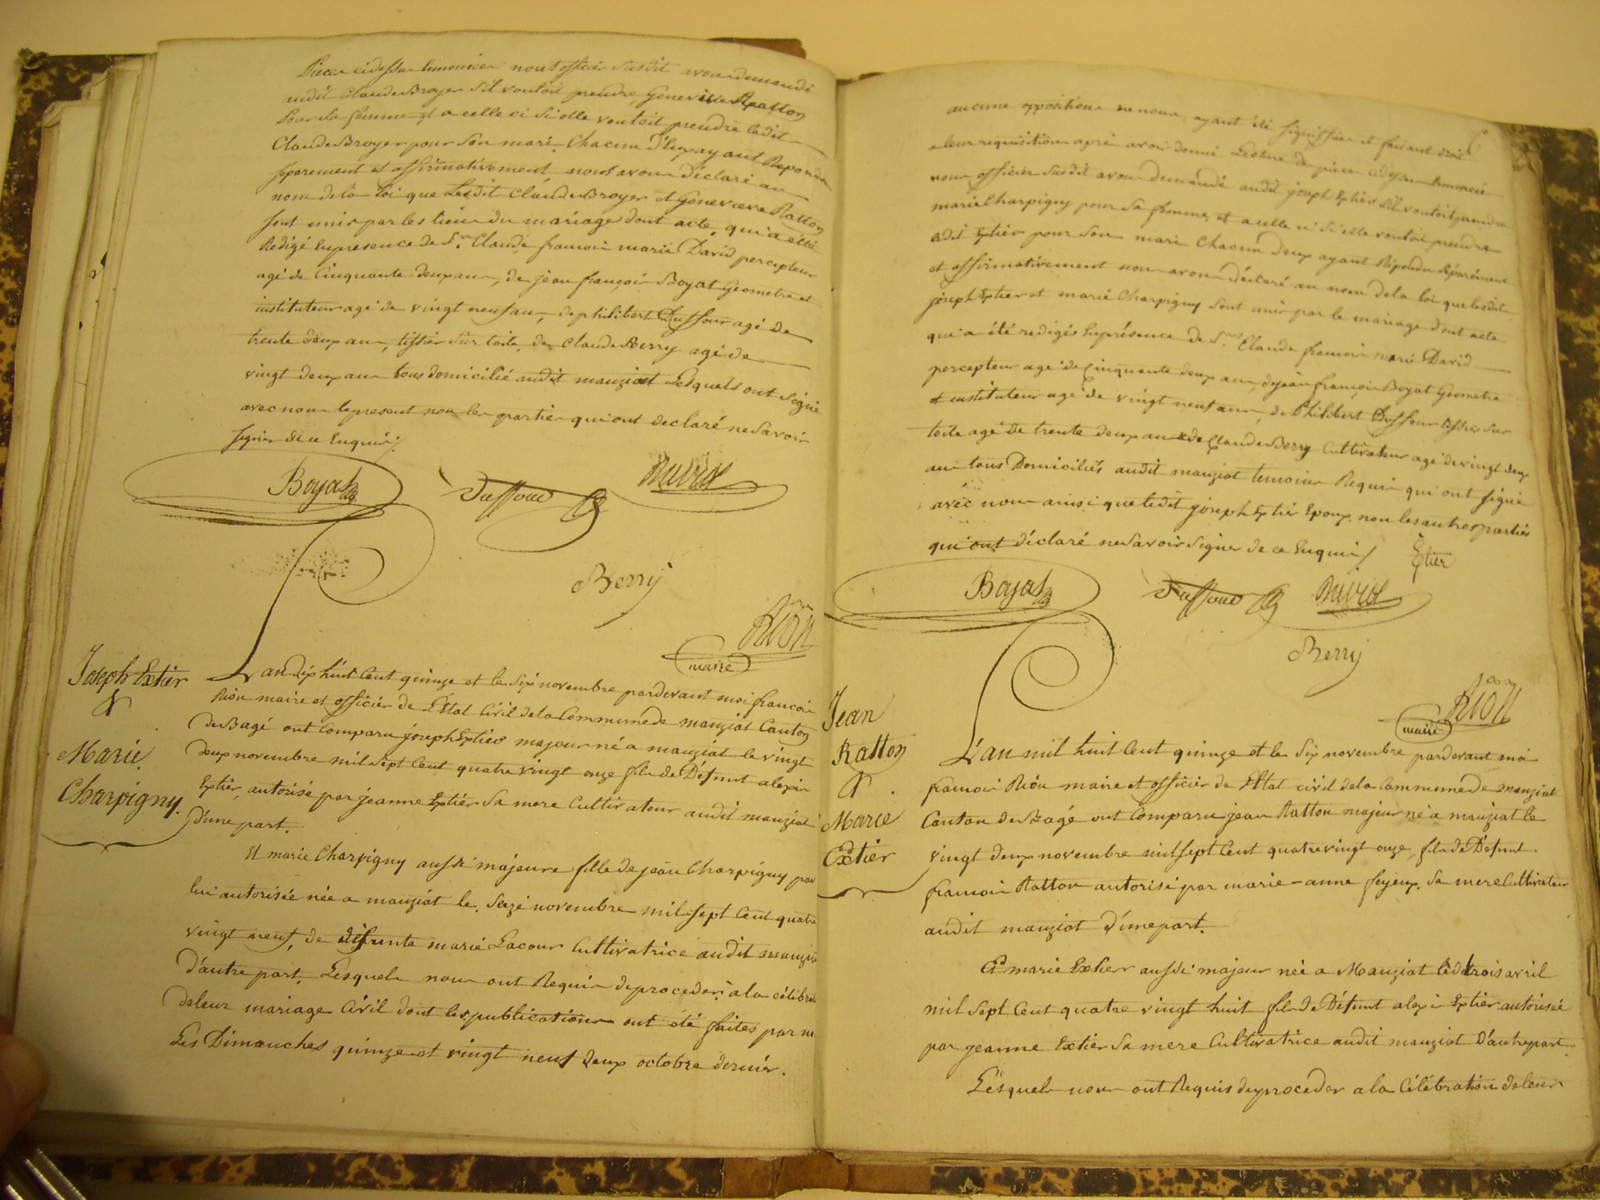 nous officier susdit avons demandé
audit Claude Broyer s'il vouloit prendre Genevieve Ratton
pour sa femme et a celle ci si elle vouloit prendre ledit
Claude Broyer pour son mari. Chacun d'eux ayant Repondu
séparement et affirmativement nous avons déclaré au
nom de la loi que Ledit Claude Broyer et Genevieve Ratton
sont unis par les liens du mariage dont acte, qui a été
Redigé En presence de Sr. Claude francois marie David percepteur
agé de Cinquante deux ans, de jean françois Boyat Géometre et
instituteur agé de vingt neuf ans, de philibert Duffour agé de
trente deux ans, tissier sur toile, de Claude Berry agé de
vingt deux ans tous domicilié audit manziat Lesquels ont signé
avec nous le present non les parties qui ont declaré ne savoir
signer de ce Enquis
Boyat
Duffour
David
Berry
Rion
maire
Joseph Extier
&
Marie
Charpigny.
L'an dix huit Cent quinze et le six novembre pardevant moi francois
Rion maire et officier de l'Etat Civil de la Commune de manziat Canton
de Bagé ont Comparu joseph Extier majeur né a manziat le vingt
deux novembre mil sept Cent quatre vingt onze fils de Défunt alexis
Extier, autorisé par jeanne Extier sa mere Cultivateur audit manziat
D'une part.
Et marie Charpigny aussi majeure fille de jean Charpigny par
lui autorisée née a manziat le seize novembre mil sept Cent quatre
vingt neuf, de défunte marie Lacour Cultivatrice audit manziat
D'autre part, Lesquels nous ont Requis de proceder a la célébra
de leur mariage Civil dont les publications ont été faites par n
Les Dimanches quinze et vingt neuf deux octobre dernier.
aucune opposition ne nous ayant été signiffiée et faisant droit
a leur requisition après avoir donné Lecture des pieces cidessus enoncées
nous officier susdit avons demandé audit joseph Extier s'il vouloit prendre
marie Charpigny pour sa femme, et a celle ci si elle vouloit prendre
ledit Extier pour son mari Chacun deux ayant Répondu séparément
et affirmativement nous avons déclaré au nom de la loi que ledit
joseph Extier et marie Charpigny sont unis par le mariage dont acte
qui a été redigés En présence de Sr. Claude francois marie David
percepteur agé de cinquante deux ans, de jean françois Boyat Géometre
et instituteur agé de vingt neuf ans, de Philibert Duffour tissier sur
toile agé de trente deux ans & de Claude Berry Cultivateur agé de vingt deux
ans tous Domiciliés audit manziat temoins Requis qui ont signé
avec nous ainsi que ledit joseph Extier Epoux non les autres parties
qui ont déclaré ne savoir signer de ce Enquis
Etier
Boyat
Duffour
David
Berry
Rion
maire
Jean
Ratton
&
Marie
Extier
L'an mil huit Cent quinze et le six novembre pardevant moi
francois Rion maire et officier de l'Etat civil de la Commune de manziat
Canton de Bagé ont Comparu jean Ratton majeur né a manziat le
vingt deux novembre mil sept Cent quatre vingt onze, fils de Defunt
francois Ratton autorisé par marie-anne feyeux, sa mere Cultivateur
audit manziat D'une part.
Et marie Extier aussi majeur née a Manziat le trois avril
mil sept Cent quatre vingt huit fils de Défunt alexis Extier autorisée
par jeanne Extier sa mere Cultivatrice audit manziat D'autre part.
Lesquels nous ont Requis de proceder a la Célébration de leur